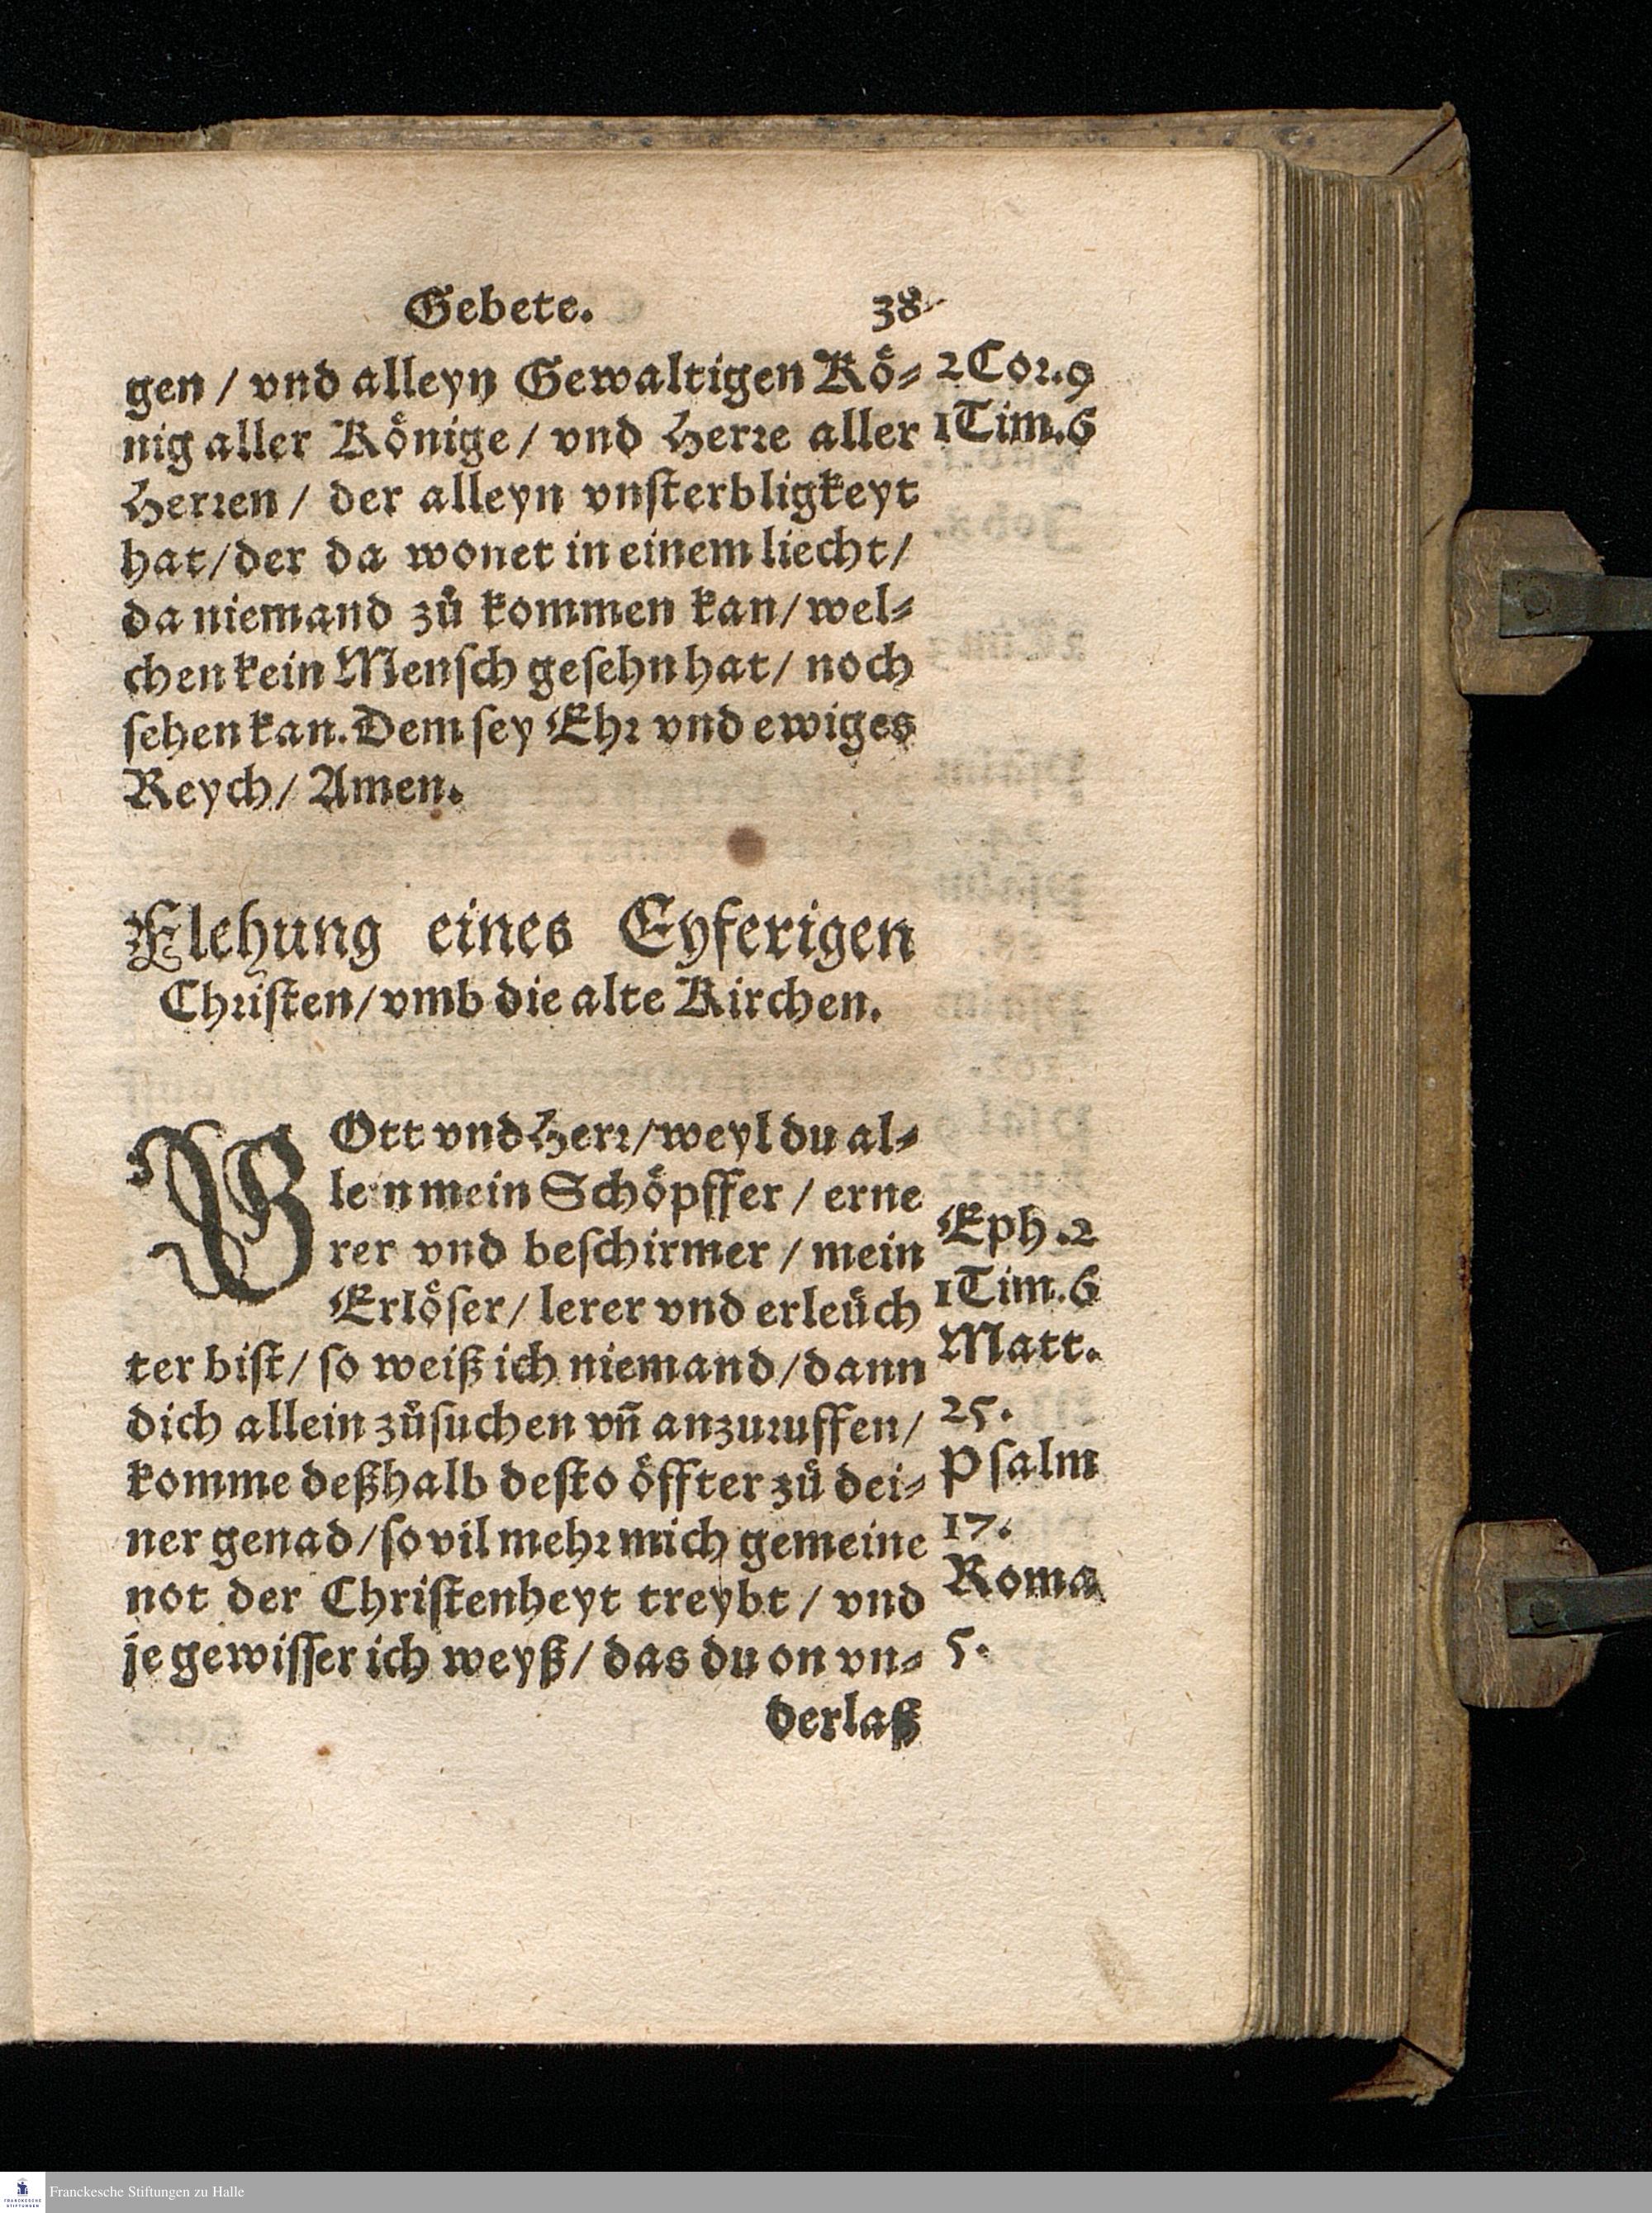 Gebete. 38
gen / vnd alleyn Gewaltigen Koͤ⸗
nig aller Koͤnige / vnd Herꝛe aller
Herꝛen / der alleyn vnſterbligkeyt
hat / der da wonet in einem liecht /
da niemand zuͦ kommen kan / wel⸗
chen kein Menſch geſehn hat / noch
ſehen kan. Dem ſey Ehꝛ vnd ewiges
Reych / Amen.
2 Coꝛ. 9
1 Tim. 6
Flehung eines Eyferigen
Chꝛiſten / vmb die alte Kirchen.
GOtt vnd Herꝛ / weyl du al⸗
lein mein Schoͤpffer / erne
rer vnd beſchirmer / mein
Erloͤſer / lerer vnd erleuͤch
ter biſt / ſo weiß ich niemand / dann
dich allein zuͦſuchen vñ anzuꝛuffen /
komme deßhalb deſto oͤffter zuͦ dei⸗
ner genad / ſo vil mehꝛ mich gemeine
not der Chriſtenheyt treybt / vnd
je gewiſſer ich weyß / das du on vn⸗
derlaß
Eph. 2
1 Tim. 6
Matt.
25.
Pſalm
17.
Roma
5.
Franckesche Stiftungen zu Halle
FRANCKESCHE
STIFTUNGEN